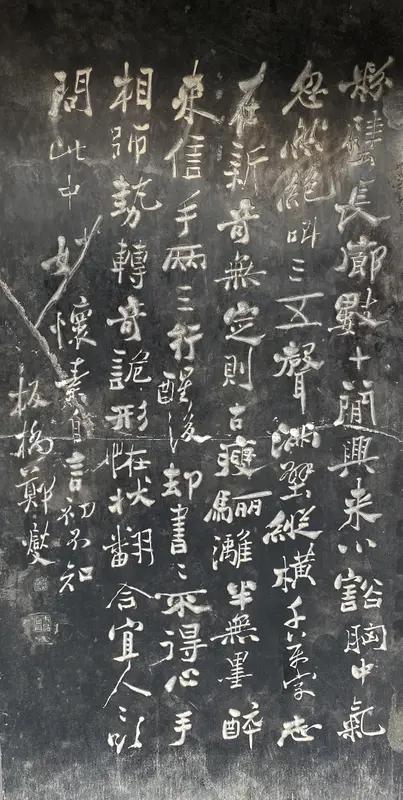 粉壁長廊數十間興来小豁胸中氣
忽然絕叫三五聲滿壁縱橫千萬字志
在新奇無定則古瘦驪灕半無墨醉
来信手兩三行醒後却書〻不得心手
相師勢轉奇詭形怪狀翻合宜人〻欲
問此中妙懷素自言初不知
板橋鄭燮